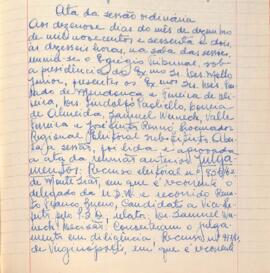 Ata da sessão ordinaria
Aos dezenove dias do mês de dezembro
de mil novecentos e sessenta e dois,
ás dezesseis horas, na sala das sessões,
reuniu-se o Egrégio Tribunal, sob
a presidência do Exmo Sr. Des. Mello
Junior, presentes os Exmos Srs. Des.
de Mendonça e Pereira de
Des. Correia
de Almeida, Samuel Werneck, Valle
Ferreira e José Procurador
Regional Eleitoral Substituto. Aberta
a sessão, foi lida e aprovada
a ata da reunião anterior. Julga-
mentos: Recurso eleitoral nº
de Monte Sião, em que é recorrente o
delegado da U.D.N. e recorrido
Franco Bueno, candidato a Vice-Pre-
feito pelo P.S.D., relator: Des. Samuel Wer-
neck. Decisão: Converteram o julga-
mento em diligência. Recurso nº
de Virginopolis, em que é recorrente